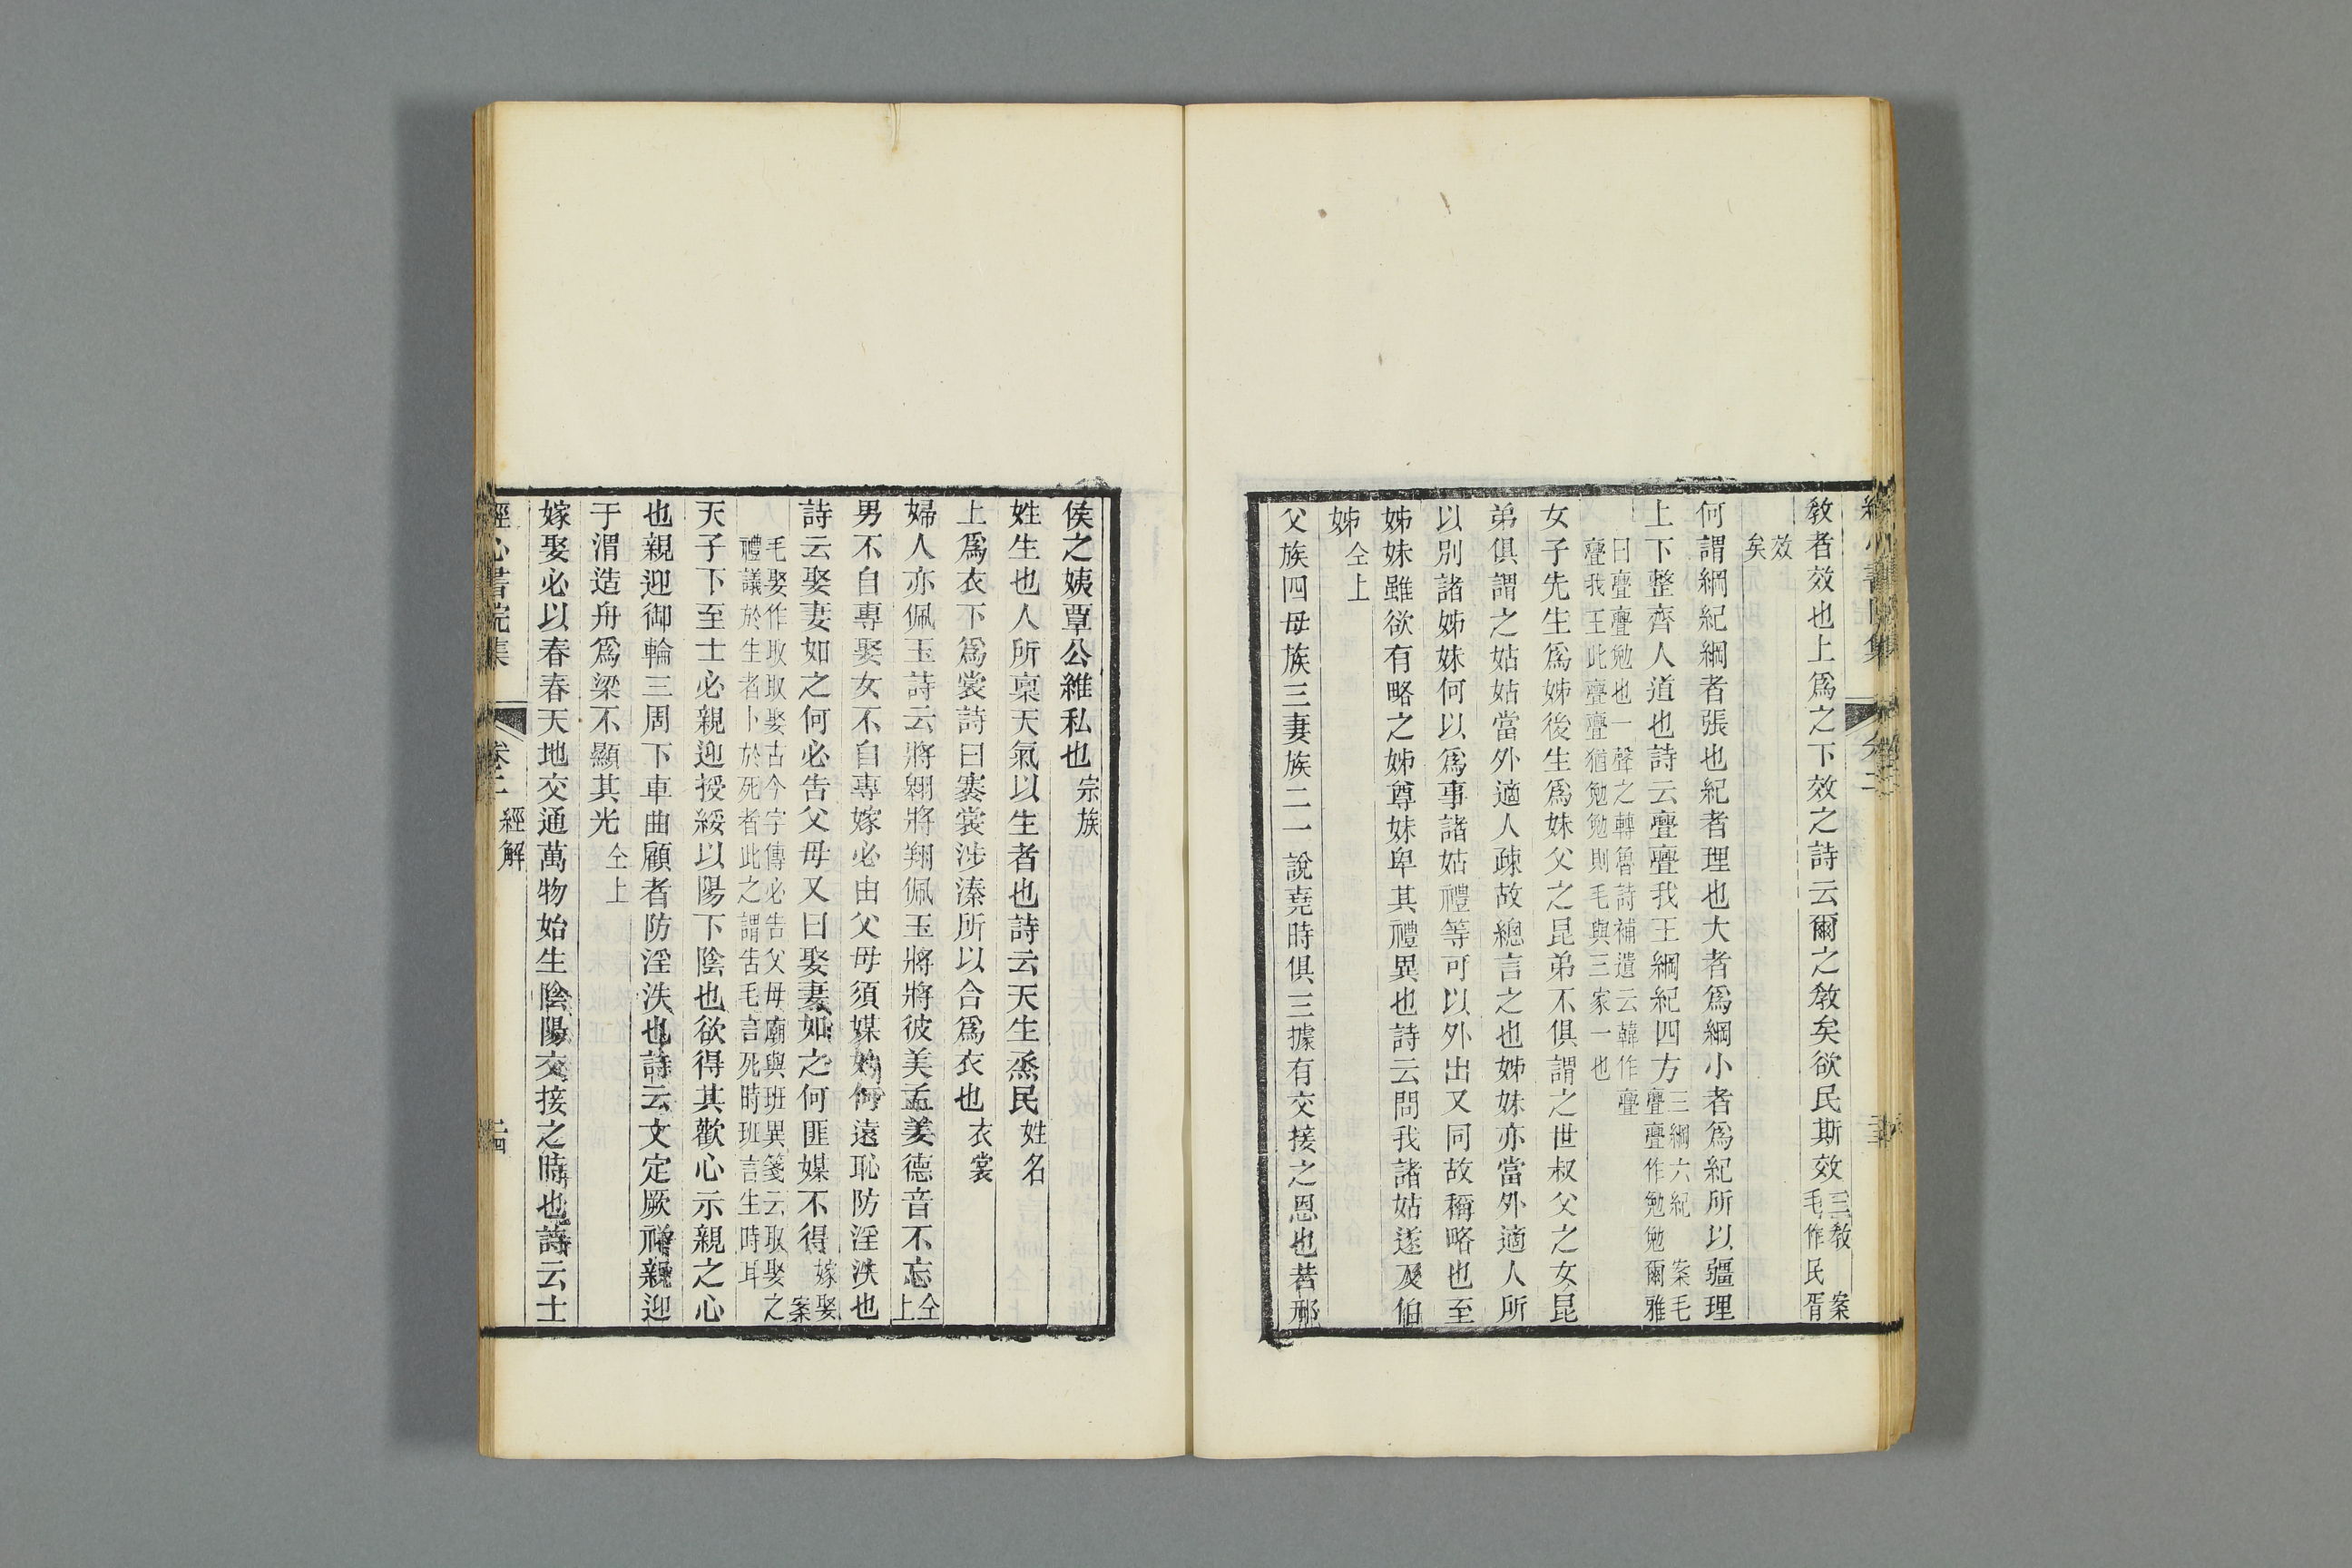 教者效也上爲之下效之詩云爾之教矣欲民斯效三教 案
毛作民胥
效
矣
何謂綱紀綱者張也紀者理也大者爲綱小者爲紀所以疆理
上下整齊人道也詩云亹亹我王綱紀四方三綱六紀 案毛
亹亹作勉勉爾雅
曰亹亹勉也一聲之轉魯詩補遺云韓作亹
亹我王此亹亹猶勉勉則毛與三家一也
女子先生爲姊後生爲妹父之昆弟不俱謂之世叔父之女昆
弟俱謂之姑姑當外適人疎故總言之也姊妹亦當外適人所
以別諸姊妹何以爲事諸姑禮等可以外出又同故稱略也至
姊妹雖欲有略之姊尊妹卑其禮異也詩云問我諸姑遂及伯
姊仝上
父族四母族三妻族二一說堯時俱三據有交接之恩也若邢
侯之姨覃公維私也宗族
姓生也人所稟天氣以生者也詩云天生烝民姓名
上爲衣下爲裳詩曰褰裳涉溱所以合爲衣也衣裳
婦人亦佩玉詩云將翱將翔佩玉將將彼美孟姜德音不忘仝
上
男不自專娶女不自專嫁必由父母須媒妁何遠恥防淫泆也
詩云娶妻如之何必告父母又曰娶妻如之何匪媒不得嫁娶
案
毛娶作取取娶古今字傳必告父母廟與班異箋云取娶之
禮議於生者卜於死者此之謂告毛言死時班言生時耳
天子下至士必親迎授綏以陽下陰也欲得其歡心示親之心
也親迎御輪三周下車曲顧者防淫泆也詩云文定厥祥親迎
于渭造舟爲梁不顯其光仝上
嫁娶必以春春天地交通萬物始生陰陽交接之時也詩云士
經心書院集 卷二 經解 二四